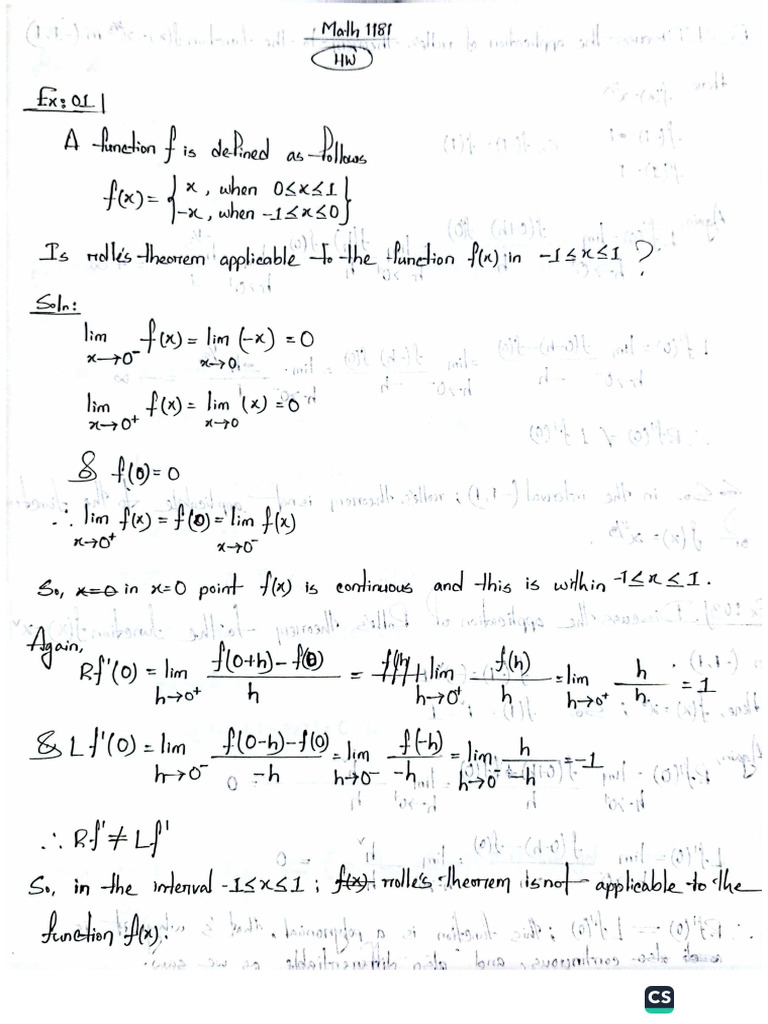 Math 1181
HW
Ex: 01
A function f is defined as follows
f(x) = { x , when 0≤x≤1
-x, when -1≤x≤0 }
Is rolle's theorem applicable to the function f(x) in -1≤x≤1 ?
Soln:
lim x→0⁻ f(x) = lim x→0 (-x) = 0
lim x→0⁺ f(x) = lim x→0 (x) = 0
& f(0) = 0
∴ lim x→0⁺ f(x) = f(0) = lim x→0⁻ f(x)
So, x=0 in x=0 point f(x) is continuous and this is within -1≤x≤1.
Again,
Rf'(0) = lim h→0⁺ f(0+h) - f(0) / h = lim h→0⁺ f(h) / h = lim h→0⁺ h / h = 1
& Lf'(0) = lim h→0⁻ f(0-h) - f(0) / -h = lim h→0⁻ f(-h) / -h = lim h→0⁻ h / -h = -1
∴ Rf' ≠ Lf'
So, in the interval -1≤x≤1 ; f(x) rolle's theorem is not applicable to the
function f(x).
CS